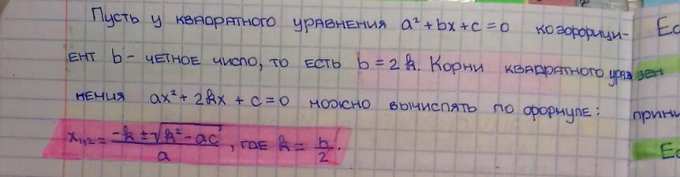 Пусть у квадратного уравнения a²+bx+c=0 коэффици-
ент b - четное число, то есть b=2k. Корни квадратного урав
нения ax²+2kx+c=0 можно вычислять по формуле:
x₁,₂= (-k±√(k²-ac))/a, где k= b/2.
Ес
прини
Ес